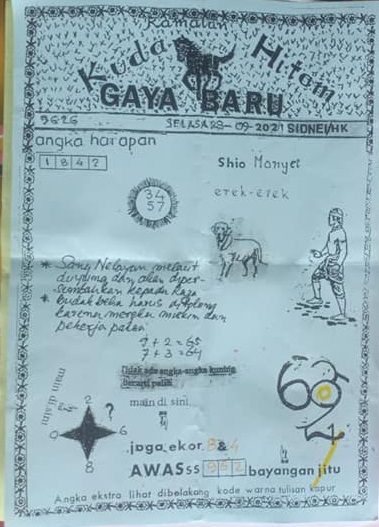 Ramalan
Kuda Hitam
GAYA BARU
9626 SELASA 28-09-2021 SIDNEI/HK
angka harapan
1 8 4 7
Shio Monyet
erek-erek
34
57
* Sang Nelayan melaut
dan akan diper-
sembahkan kepada Raja
* budak belia harus ditolong
karena mereka miskin dan
pekerja
9 + 2 = 65
7 + 3 = 64
Tidak ada angka-angka kunting
berarti palsu
main disini
main di sini
2
?
0
6
8
694
7
jaga ekor 8 & 4
AWASss 852 bayangan jitu
Angka ekstra lihat dibelakang kode warna tulisan kapur